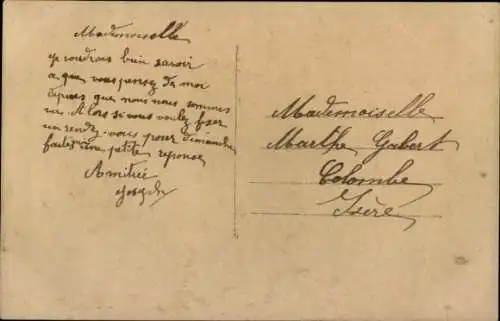 Mademoiselle
je voudrais bien savoir
a que vous pensez de moi
depuis que nous nous sommes
vus. Alors si vous voulez fixer
un rendez-vous pour dimanche
faites une petite reponse
Amitiée
Mademoiselle
Marthe Gabert
Colombe
Isère